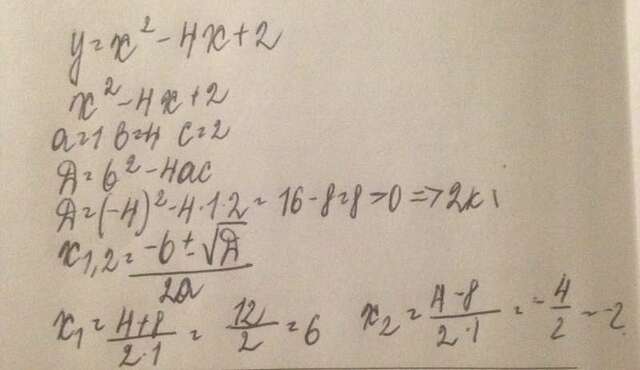 y = x² - 4x + 2
x² - 4x + 2
a=1 b=4 c=2
D = b² - 4ac
D = (-4)² - 4·1·2 = 16 - 8 = 8 > 0 => 2к
x₁,₂ = (-b ± √D) / 2a
x₁ = (4+8) / (2·1) = 12/2 = 6 x₂ = (4-8) / (2·1) = -4/2 = -2